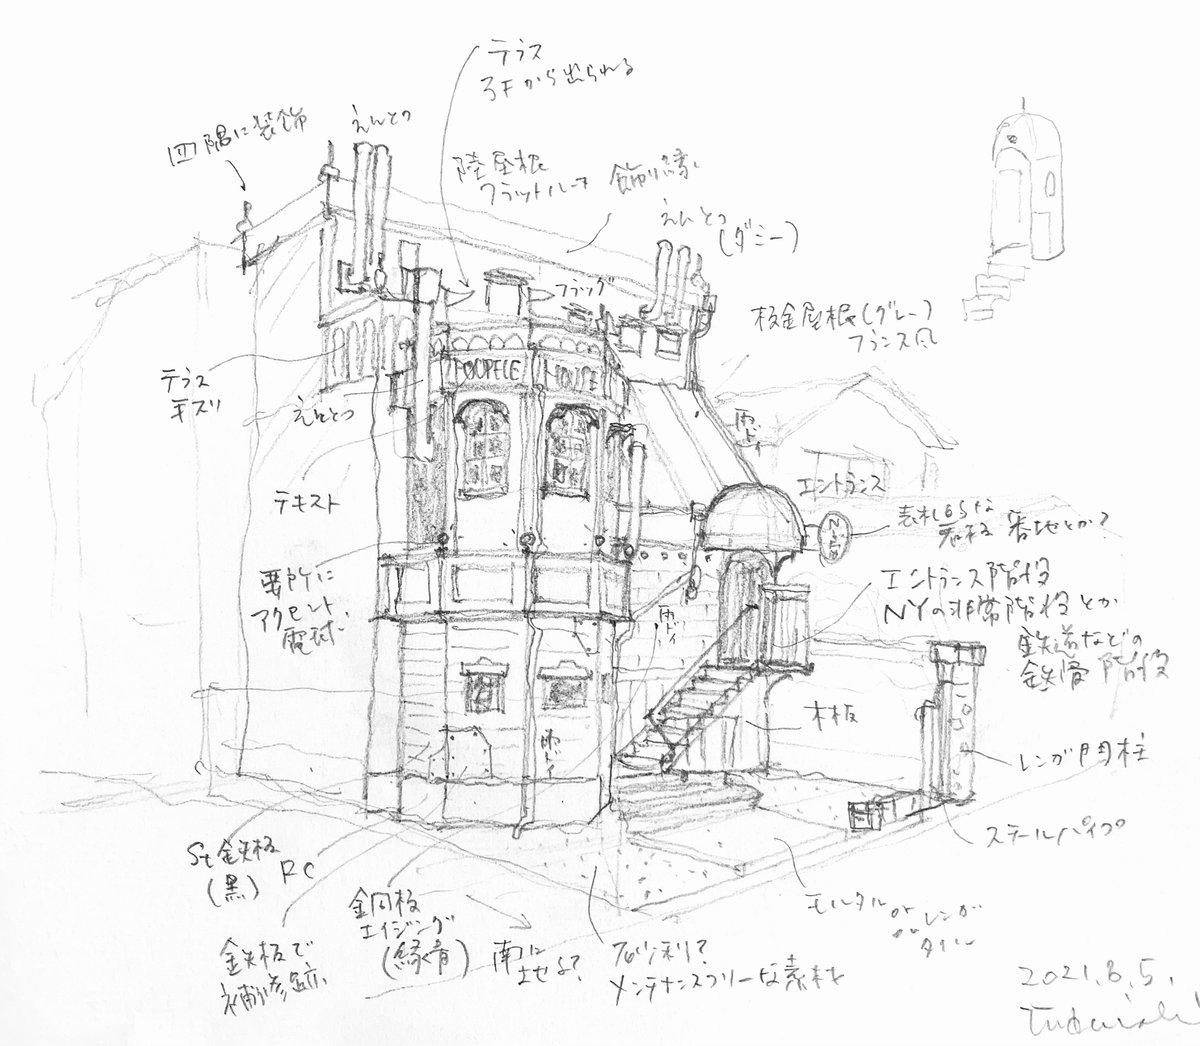 テラス
3Fから出られる
えんとつ
四隅に装飾
陸屋根
フラットルーフ
飾り縁
えんとつ
(ダミー)
フラッグ
板金屋根(グレー)
フランス風
テラス
手スリ
えんとつ
HOUSE
雨ドイ
エントランス
テキスト
表札のような
看板 番地とか?
要所に
アクセント
電球
エントランス階段
NYの非常階段とか
鉄道などの
鉄骨階段
雨ドイ
木板
雨ドイ
レンガ門柱
スチールパイプ
St鉄板
(黒)
RC
銅板
エイジング
(緑青)
モルタル or レンガ
タイル
鉄板で
補修跡
南に
土地よ?
砂利?
メンテナンスフリーな素材
2021.8.5.